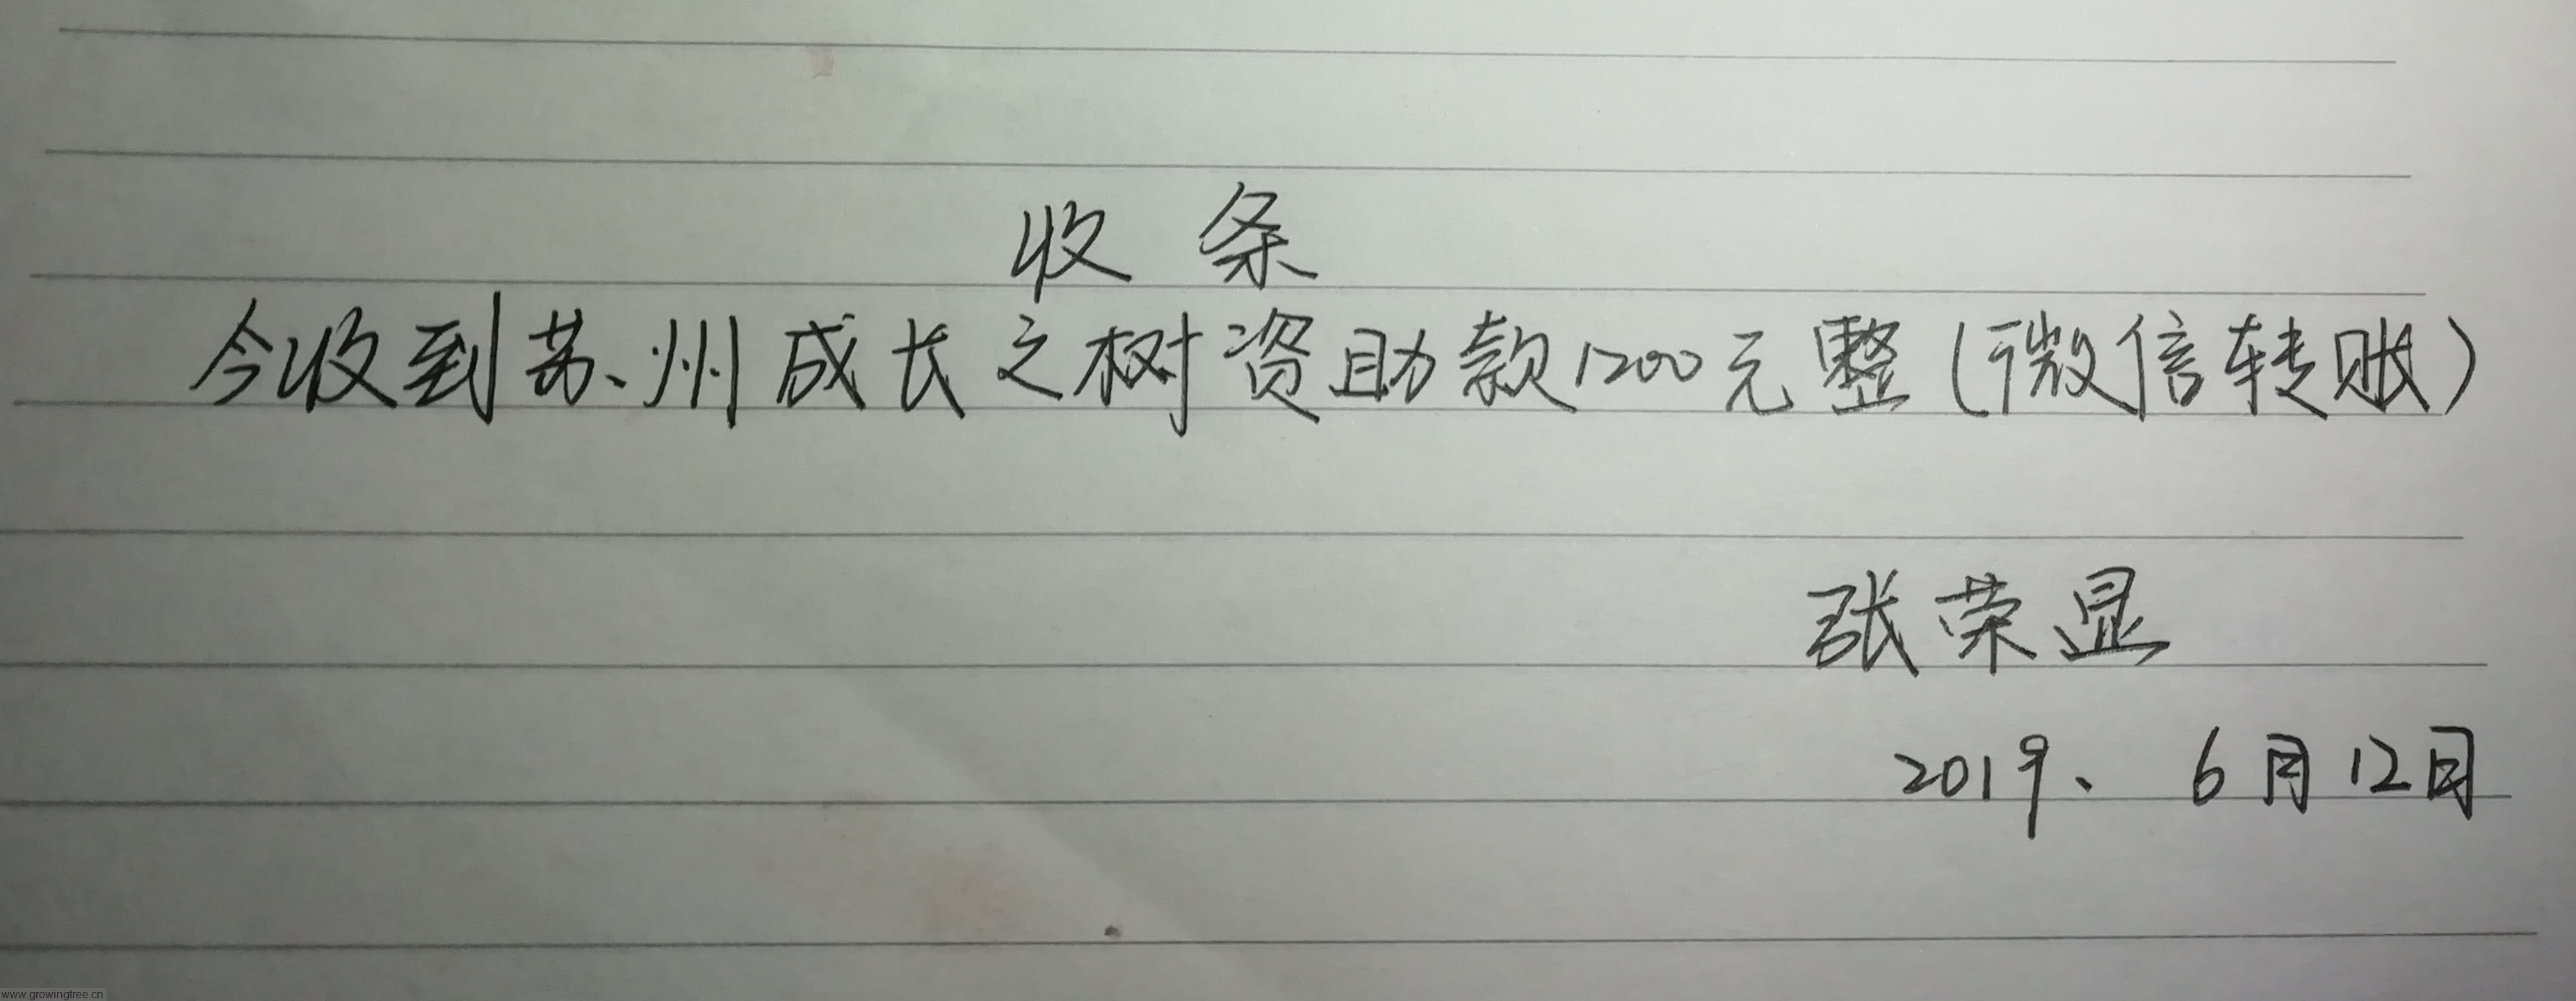 收条
今收到苏州成长之树资助款1200元整(微信转账)
张荣显
2019、6月12日
www.growingtree.cn